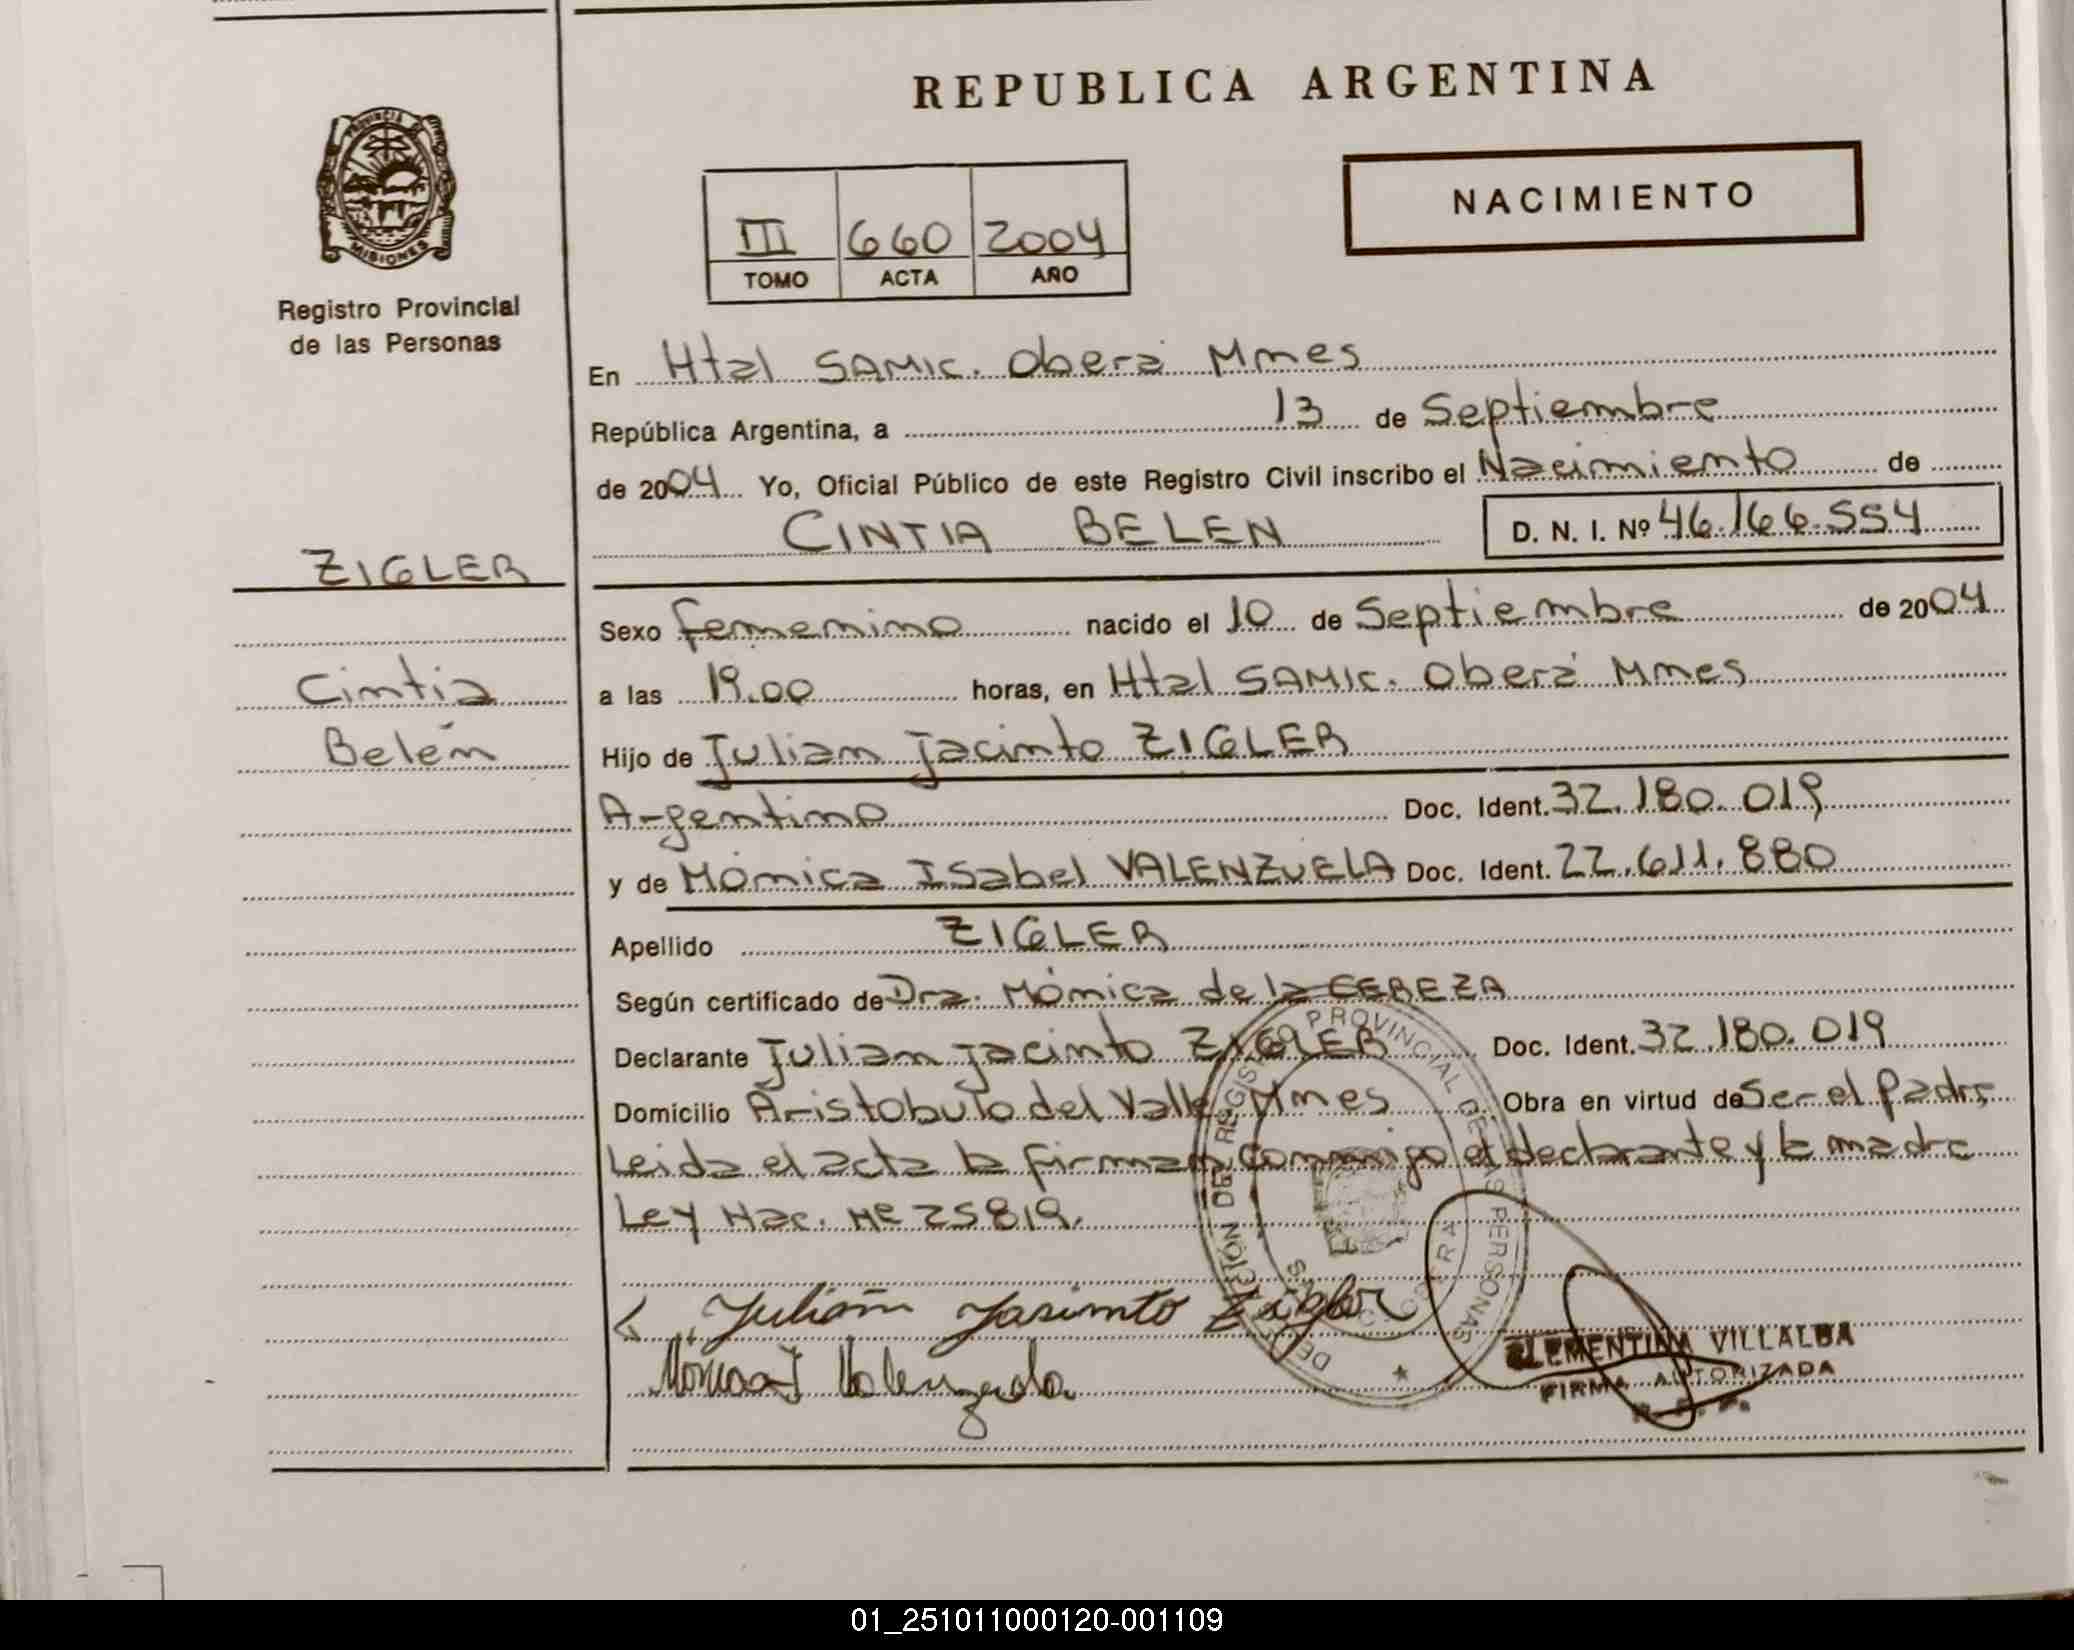 REPUBLICA ARGENTINA
PROVINCIA DE
MISIONES
Registro Provincial
de las Personas
NACIMIENTO
III 660 2004
TOMO ACTA AÑO
En Htal SAMIC. Oberá Mnes
República Argentina, a 13 de Septiembre
de 2004 Yo, Oficial Público de este Registro Civil inscribo el Nacimiento de
CINTIA BELEN D. N. I. Nº 46.166.554
ZIGLER
Cintia
Belén
Sexo femenino nacido el 10 de Septiembre de 2004
a las 19.00 horas, en Htal SAMIC. Oberá Mnes
Hijo de Julian Jacinto ZIGLER
Argentino Doc. Ident. 32.180.019
y de Mónica Isabel VALENZUELA Doc. Ident. 22.611.880
Apellido ZIGLER
Según certificado de Dra. Mónica de la CEREZA
Declarante Julian Jacinto ZIGLER Doc. Ident. 32.180.019
Domicilio Aristobulo del Valle Mnes Obra en virtud de Ser el Padre
Leida el acta la firman conmigo el declarante y la madre
Ley Nac. Nº 25819.
Julián Jasinto Zigler
Monica I Valenzuela
CLEMENTINA VILLALBA
FIRMA AUTORIZADA
PROVINCIAL DE LAS PERSONAS
01_251011000120-001109